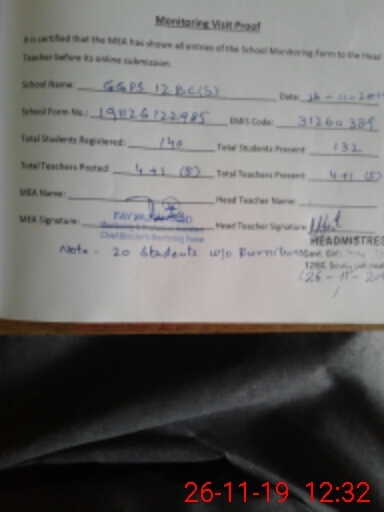 Monitoring Visit Proof
It is certified that the MEA has shown all entries of the School Monitoring Form to the Head
Teacher before its online submission.
School Name: GGPS 12 BC(S) Date: 26-11-201
School Form No.: 191126122985 EMIS Code: 31260389
Total Students Registered: 140 Total Students Present 132
Total Teachers Posted: 4+1 (5) Total Teachers Present 4+1 (5)
MEA Name: Head Teacher Name:
MEA Signature: Head Teacher Signature
HEADMISTRES
Note - 20 Students w/o Furniture
26-11-20
26-11-19 12:32